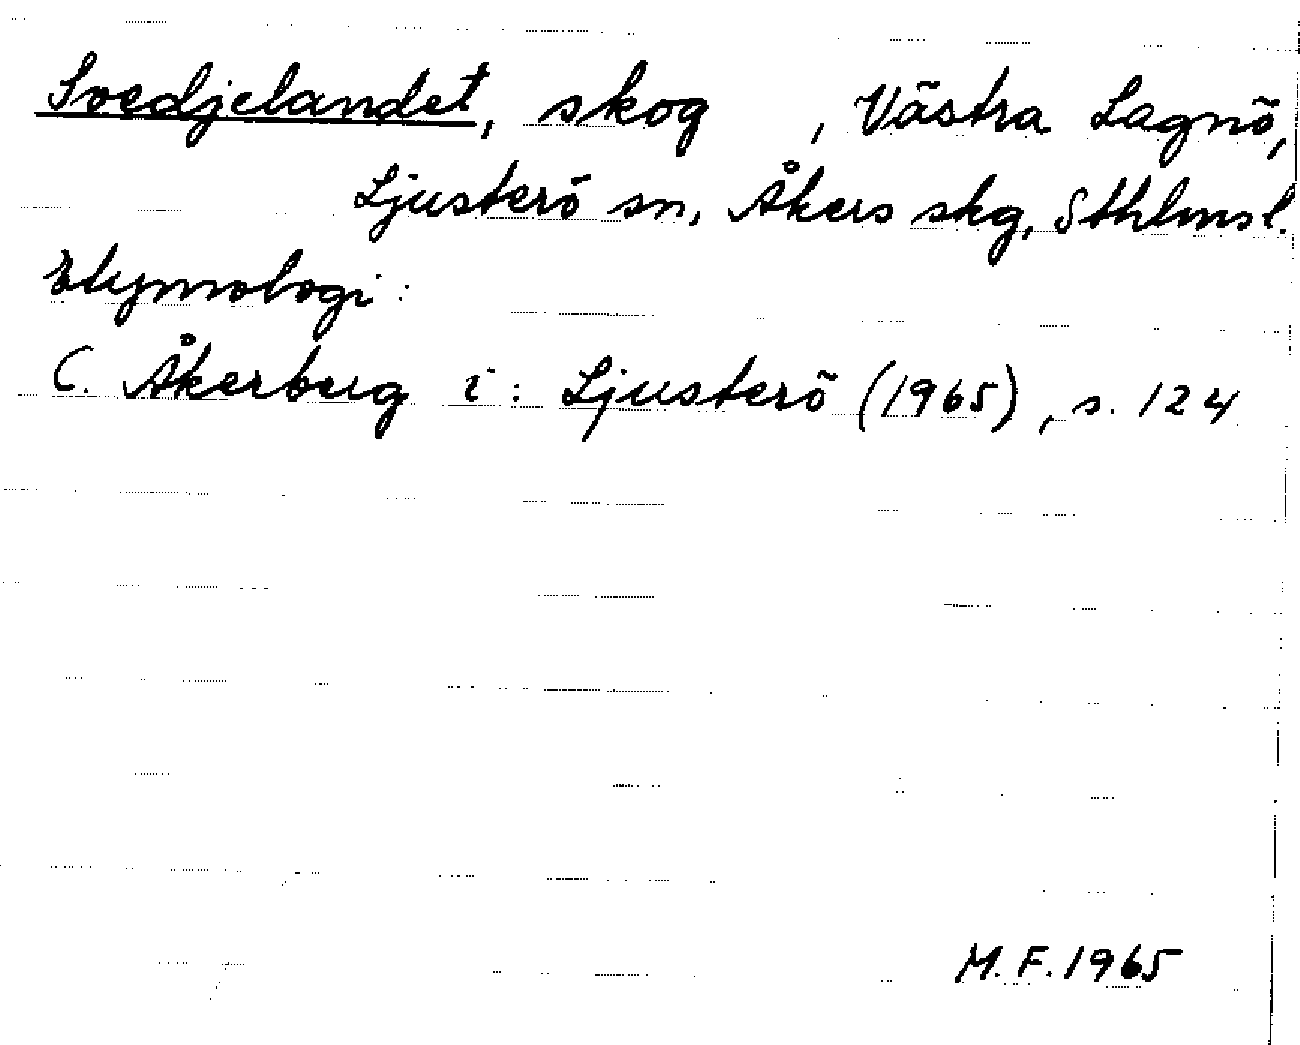 Svedjelandet, skog , Västra Lagnö,
Ljusterö sn, Åkers skg, Sthlmsl.
Etymologi:
C. Åkerberg i: Ljusterö (1965), s. 124
M.F. 1965